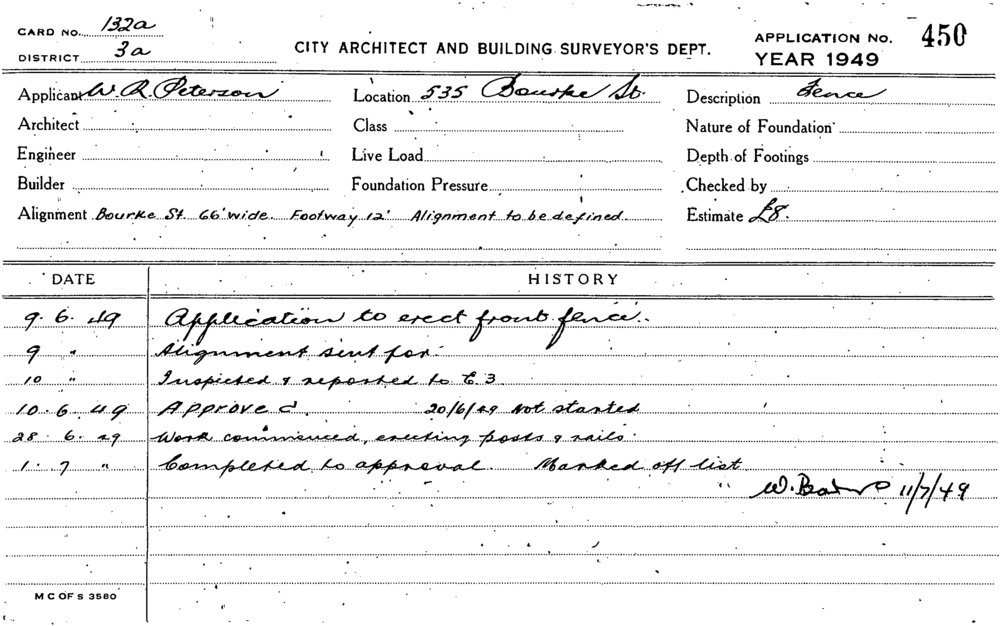 CARD NO. 132a
DISTRICT 3a
CITY ARCHITECT AND BUILDING SURVEYOR'S DEPT.
APPLICATION NO. 450
YEAR 1949
Applicant W. R. Peterson Location 535 Bourke St. Description Fence
Architect Class Nature of Foundation
Engineer Live Load Depth of Footings
Builder Foundation Pressure Checked by
Alignment Bourke St. 66' wide. Footway 12' Alignment to be defined Estimate £8.
DATE HISTORY
9. 6. 49 Application to erect front fence.
9 " Alignment sent for.
10 " Inspected & reported to E.3.
10. 6. 49 Approved. 20/6/49 Not started
28. 6. 49 Work commenced, erecting posts & rails.
1. 7 " Completed to approval. Marked off list
" W. 11/7/49
M C OF S 3580